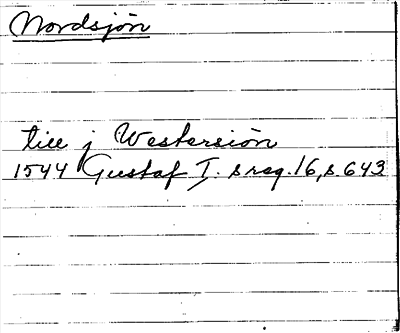 Nordsjön
till j Westersiön
1544 Gustaf I. s reg. 16, s 643